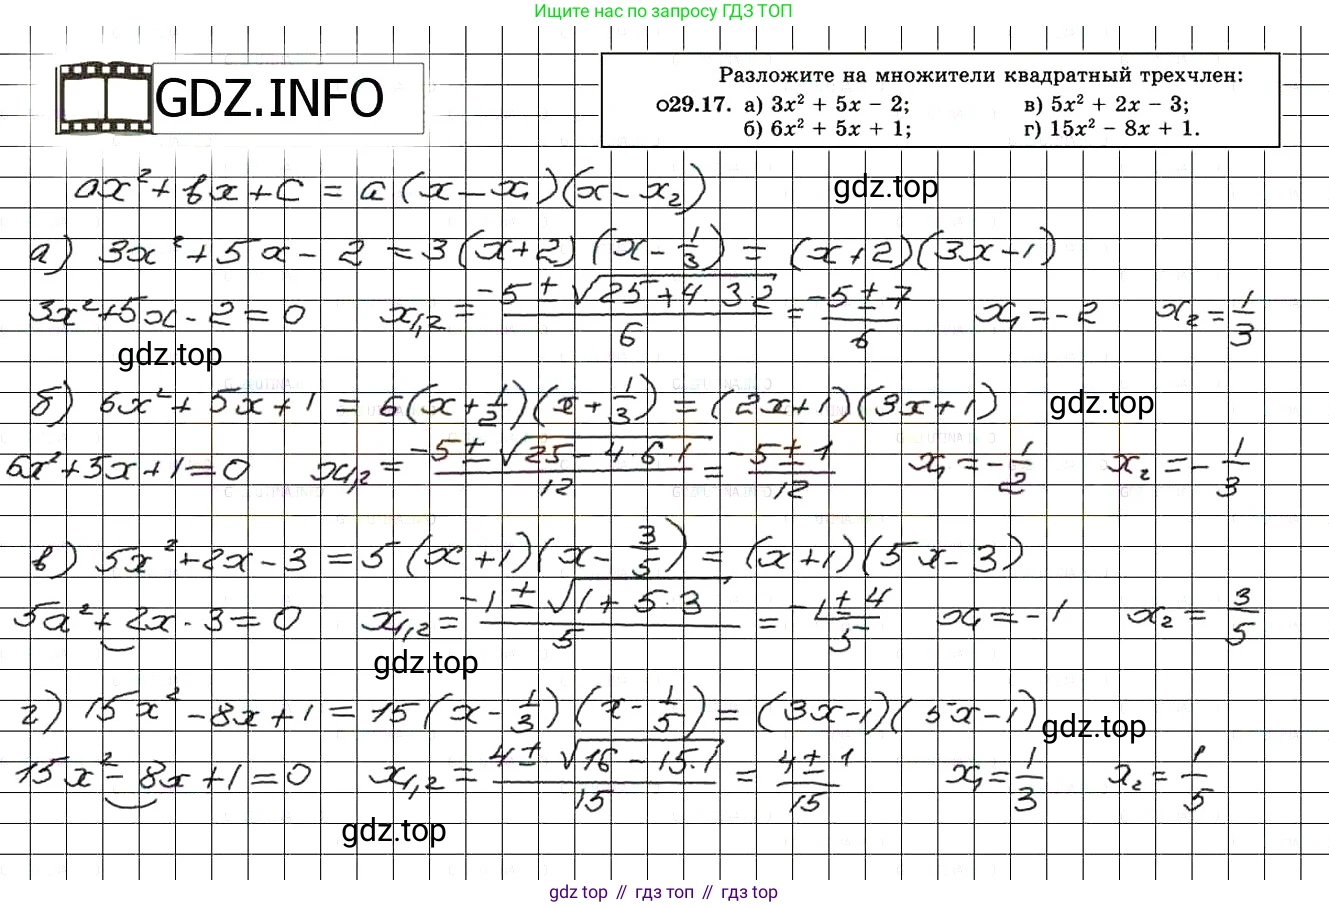 Ищите нас по запросу ГДЗ ТОП
GDZ.INFO
Разложите на множители квадратный трехчлен:
о29.17. а) 3x² + 5x − 2; в) 5x² + 2x − 3;
б) 6x² + 5x + 1; г) 15x² − 8x + 1.
ax² + bx + c = a(x − x₁)(x − x₂)
gdz.top
а) 3x² + 5x − 2 = 3(x+2)(x − 1/3) = (x+2)(3x−1)
3x²+5x−2=0 x₁,₂ = (−5 ± √(25+4·3·2))/6 = (−5 ± 7)/6 x₁ = −2 x₂ = 1/3
gdz.top
б) 6x² + 5x + 1 = 6(x + 1/2)(x + 1/3) = (2x+1)(3x+1)
gdz.top
6x²+5x+1=0 x₁,₂ = (−5 ± √(25−4·6·1))/12 = (−5 ± 1)/12 x₁ = −1/2 x₂ = −1/3
в) 5x² + 2x − 3 = 5(x+1)(x − 3/5) = (x+1)(5x−3)
5x² + 2x − 3 = 0 x₁,₂ = (−1 ± √(1+5·3))/5 = (−1 ± 4)/5 x₁ = −1 x₂ = 3/5
gdz.top
г) 15x² − 8x + 1 = 15(x − 1/3)(x − 1/5) = (3x−1)(5x−1)
gdz.top
15x² − 8x + 1 = 0 x₁,₂ = (4 ± √(16−15·1))/15 = (4 ± 1)/15 x₁ = 1/3 x₂ = 1/5
gdz.top
gdz top // гдз топ // gdz top